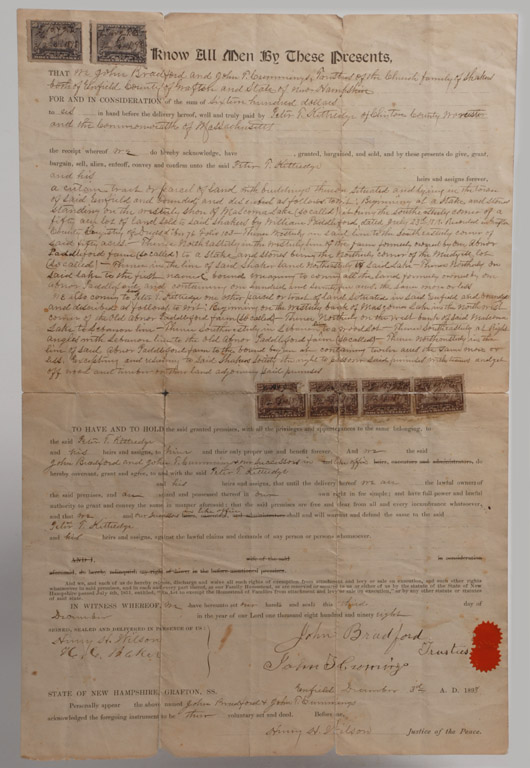 Know All Men By These Presents,
THAT We John Bradford and John P. Cummings, Trustees of the Church family of Shakers
of Enfield, County of Grafton and State of New Hampshire
FOR AND IN CONSIDERATION of the sum of Sixteen hundred dollars
to us in hand before the delivery hereof, well and truly paid by Peter T. Kittredge of Clinton County Worcester
and the Commonwealth of Massachusetts
the receipt whereof we do hereby acknowledge, have , granted, bargained, and sold, and by these presents do give, grant,
bargain, sell, alien, enfeoff, convey and confirm unto the said Peter T. Kittredge
and his heirs and assigns forever,
a certain tract or parcel of land with buildings thereon situated and lying in the town
of said Enfield and bounded and described as follows to wit: Beginning at a Stake and stones
standing on the westerly shore of Mascoma Lake (so called)
fifty acre lot of land sold said Shakers by William Paddleford dated
said fifty acres — Thence Northeasterly in the westerly line of the farm formerly owned by one Abnor
Paddleford farm (so called) to a Stake and stones being the Northerly corner of the lot
(so called) — Thence in the line of said Shaker land Northeasterly to said Lake — Thence Westerly on
said Lake to the first named bound, meaning to convey all the land formerly owned by one
abnor Paddleford, and containing one hundred and acres, be the same more or less
We also convey to Peter T. Kittredge one other parcel or tract of land situated in said Enfield and bounded
and described as follows to wit: Beginning on the westerly bank of Mascoma Lake in the Northwest
corner of the Old Abnor Paddleford farm (so called) — Thence Northerly on the west bank of said Mascoma
Lake to Lebanon line — Thence Southwesterly in Lebanon line to a wood lot — Thence Southeasterly at Right
angles with Lebanon line to the Old Abnor Paddleford farm (so called) — Thence Northeasterly in the
line of said Abnor Paddleford farm to the bound begun at containing twelve acres be the same more or
less. Excepting and reserving to said Shakers the right to pass on said premises
off wood and timber on their land adjoining said premises
TO HAVE AND TO HOLD the said granted premises, with all the privileges and appurtenances to the same belonging, to
the said Peter T. Kittredge
and his heirs and assigns, to him and their only proper use and benefit forever. And we the said
John Bradford and John P. Cummings and our successors in said office heirs, executors and administrators, do
hereby covenant, grant and agree, to and with the said Peter T. Kittredge
and his heirs and assigns, that until the delivery hereof we are the lawful owners of
the said premises, and are seized and possessed thereof in our own right in fee simple; and have full power and lawful
authority to grant and convey the same in manner aforesaid; that the said premises are free and clear from all and every incumbrance whatsoever,
and that we and our successors in like office shall and will warrant and defend the same to the said
Peter T. Kittredge
and his heirs and assigns, against the lawful claims and demands of any person or persons whomsoever.
AND I, wife of the said in consideration
aforesaid, do hereby relinquish my right of dower in the before mentioned premises.
And we, and each of us do hereby release, discharge and waive all such rights of exemption from attachment and levy or sale on execution, and such other rights
whatsoever in said premises, and in each and every part thereof, as our Family Homestead, as are reserved or secured to us or either of us by the statute of the State of New
Hampshire passed July 4th, 1851, entitled, "An Act to exempt the Homestead of Families from attachment and levy or sale on execution," or by any other statute or statutes
of said state.
IN WITNESS WHEREOF, we have hereunto set our hands and seals this third day of
December in the year of our Lord one thousand eight hundred and ninety eight
SIGNED, SEALED AND DELIVERED IN PRESENCE OF US:
Henry H. Wilson
H. C. Baker
John Bradford
John P. Cummings
Trustees
STATE OF NEW HAMPSHIRE, GRAFTON, SS.
Enfield December 3d, A. D. 1898
Personally appeared the above named John Bradford & John P. Cummings
acknowledged the foregoing instrument to be their voluntary act and deed. Before me,
Henry H. Wilson Justice of the Peace.